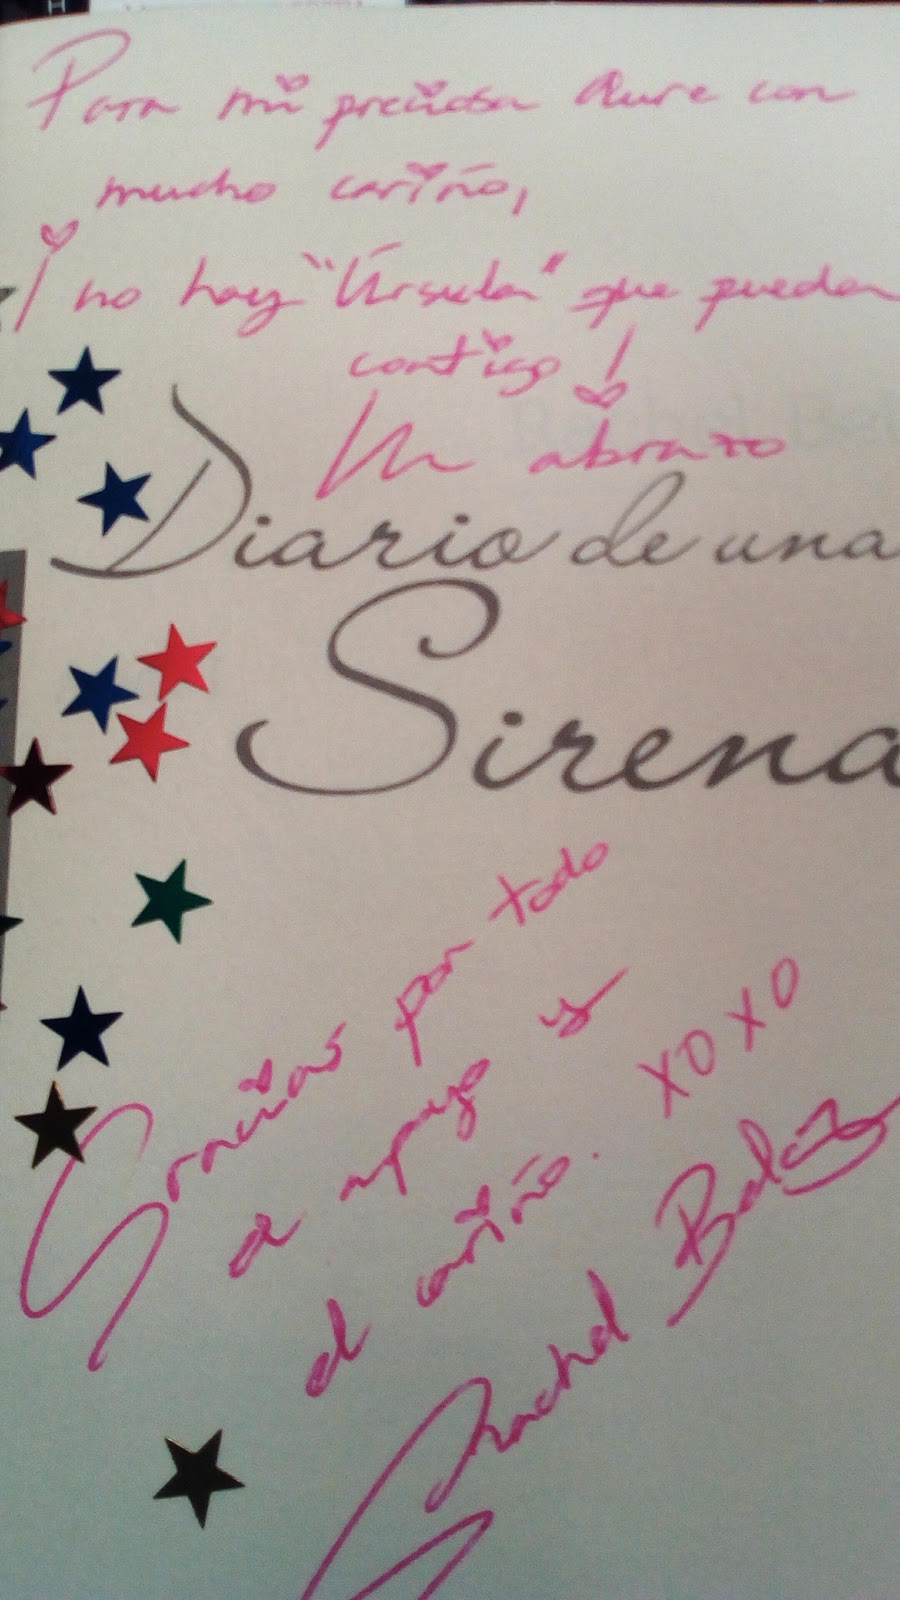 Para mi preciosa Aure con
mucho cariño,
¡no hay "Úrsula" que pueda
contigo!
Un abrazo
Diario de una
Sirena
Gracias por todo
el apoyo y
el cariño. XOXO
Rachel